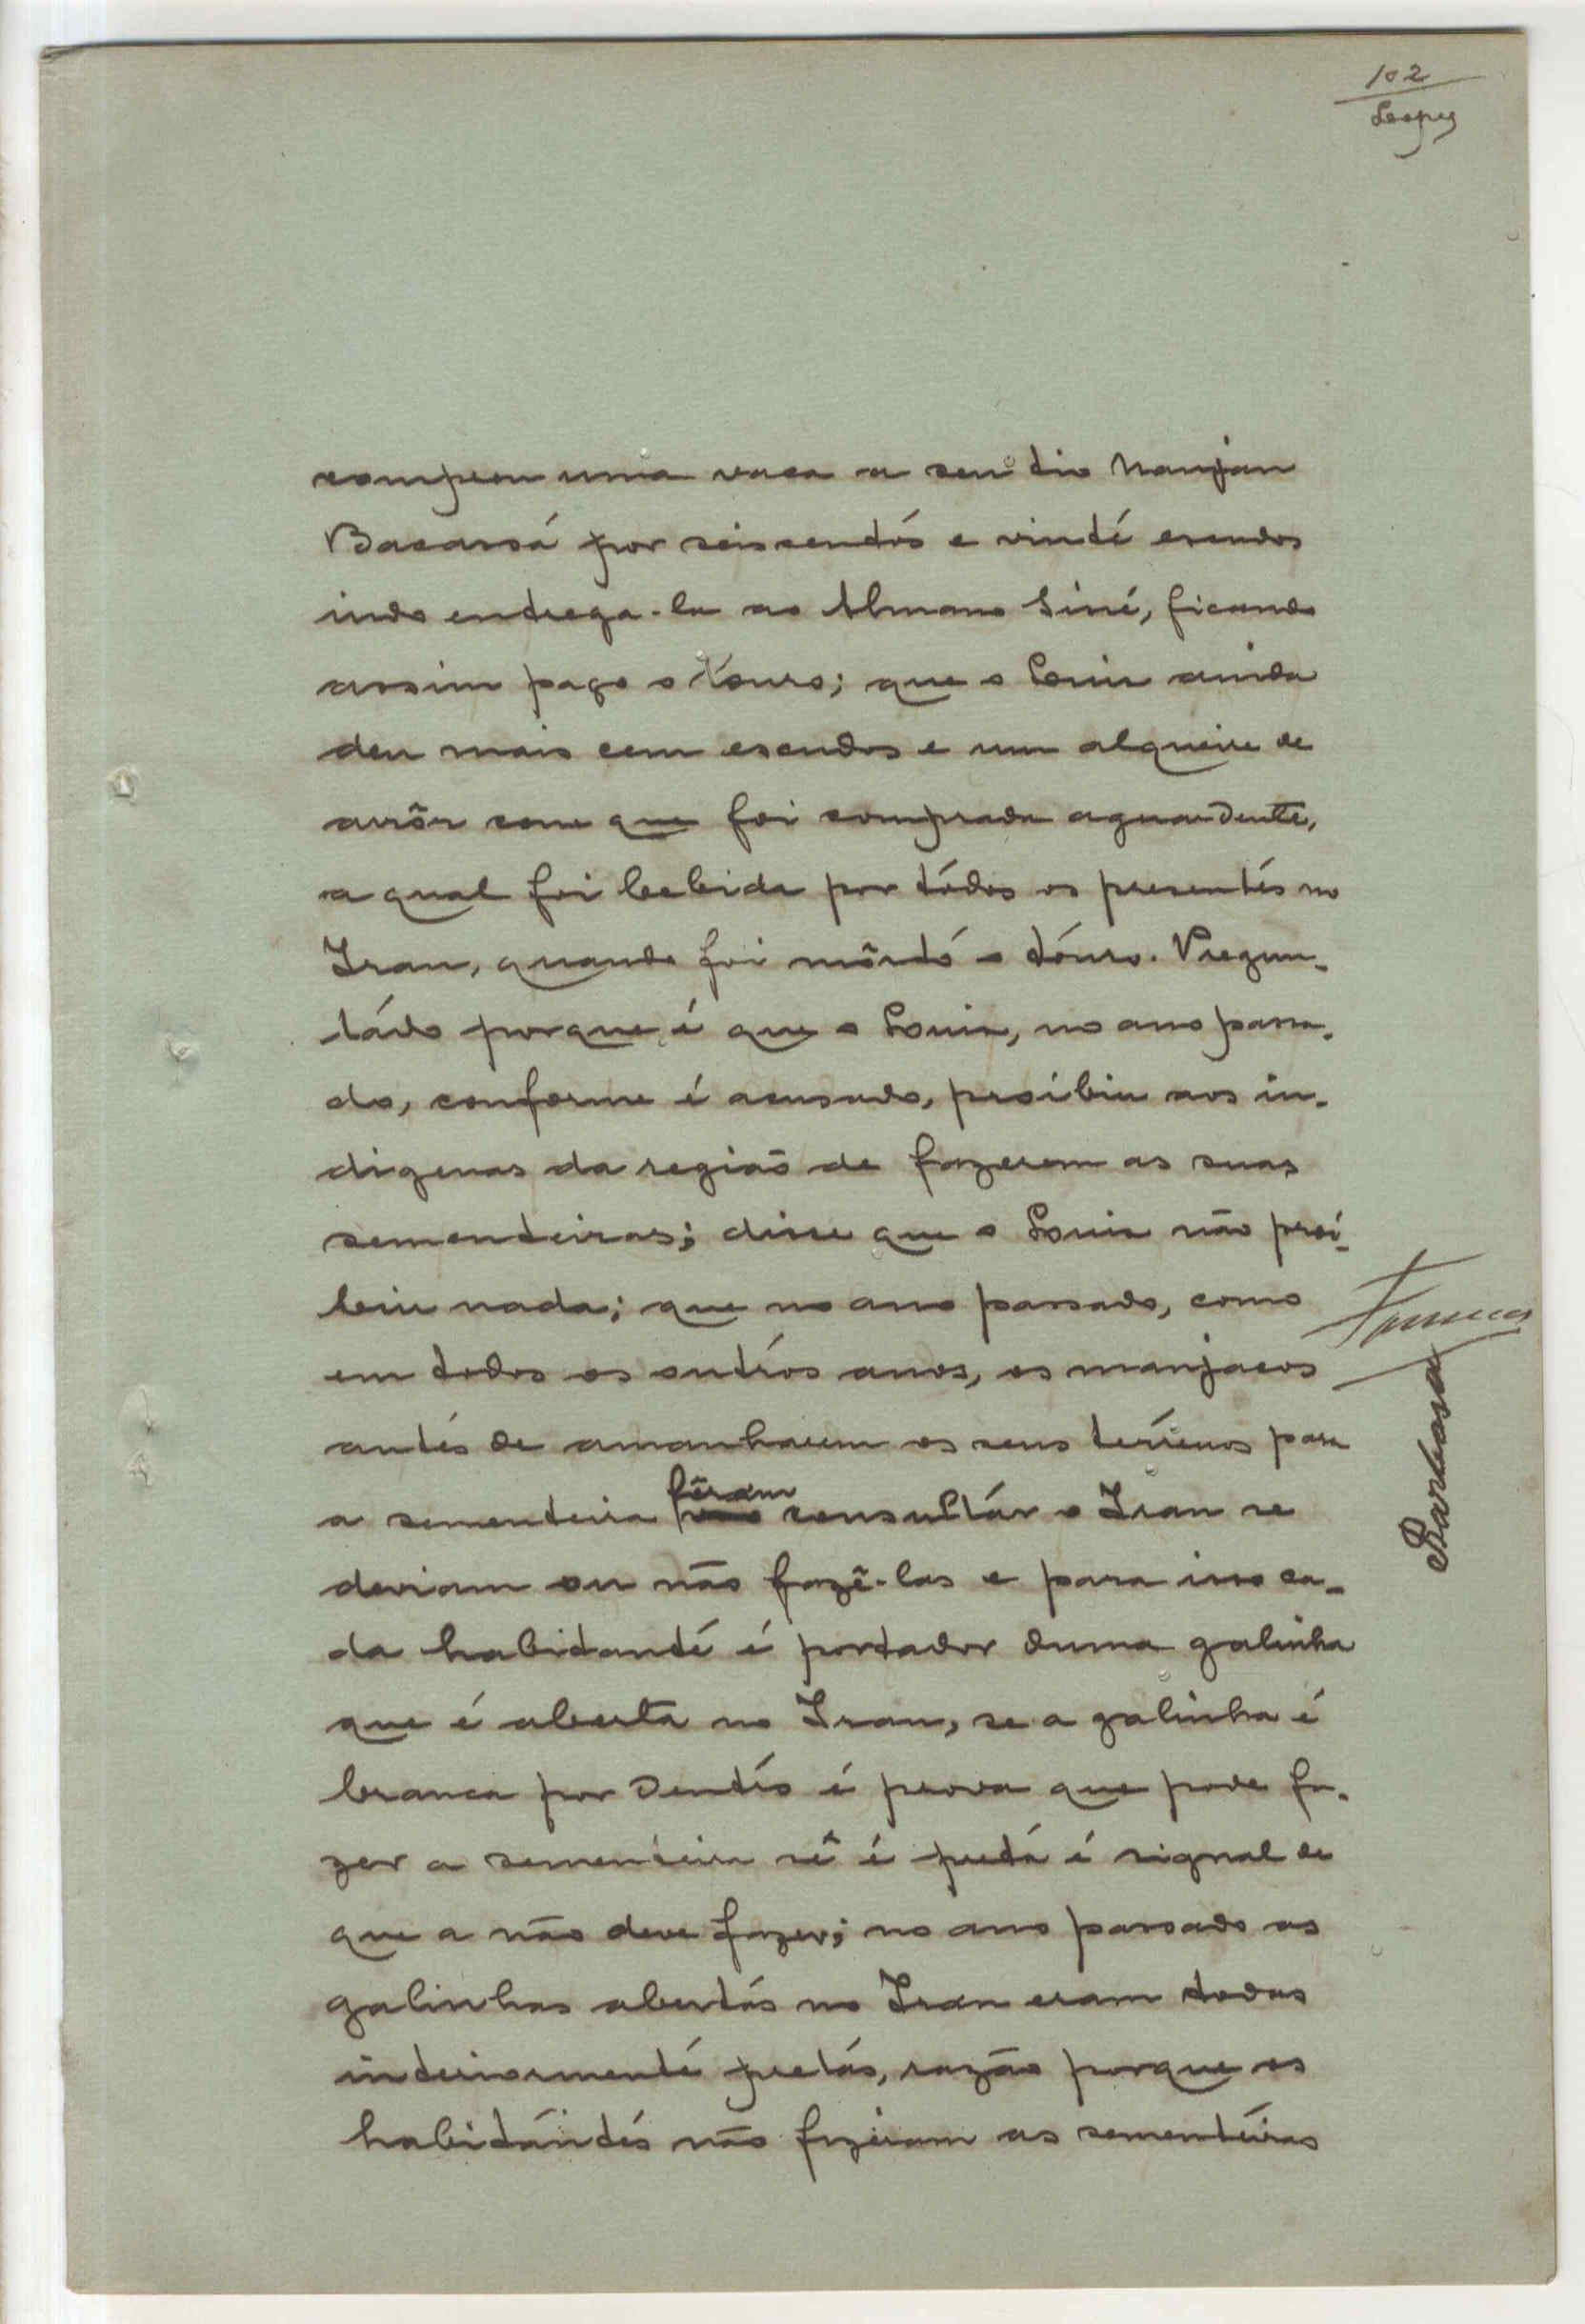 102
Lopes
comprou uma vaca a seu tio Nanjan
Bacassá por seiscentos e vinte escudos
indo entrega-la ao Almano Siné, ficando
assim pago o touro; que o Louis ainda
deu mais cem escudos e um alqueire de
arrôz com que foi comprada aguardente,
a qual foi bebida por tódos os presentes no
Iran, quando foi môrto o touro. Pregun-
tádo porque é que o Louis, no ano passa-
do, conforme é acusado, proíbiu aos in-
digenas da região de fazerem as suas
sementeiras; disse que o Louis não proí-
biu nada; que no ano passado, como
em todos os outros anos, os manjacos
antes de amanharem os seus terrenos para
a sementeira fôram consultár o Iran se
deviam ou não fazê-las e para isso ca-
da habitante é portador duma galinha
que é aberta no Iran, se a galinha é
branca por dentro é prova que pode fa-
zer a sementeira sê é preta é signal de
que a não deve fazer; no ano passado as
galinhas abertas no Iran eram todas
interiormente pretas, razão porque os
habitantes não fizeram as sementeiras
Barbosa